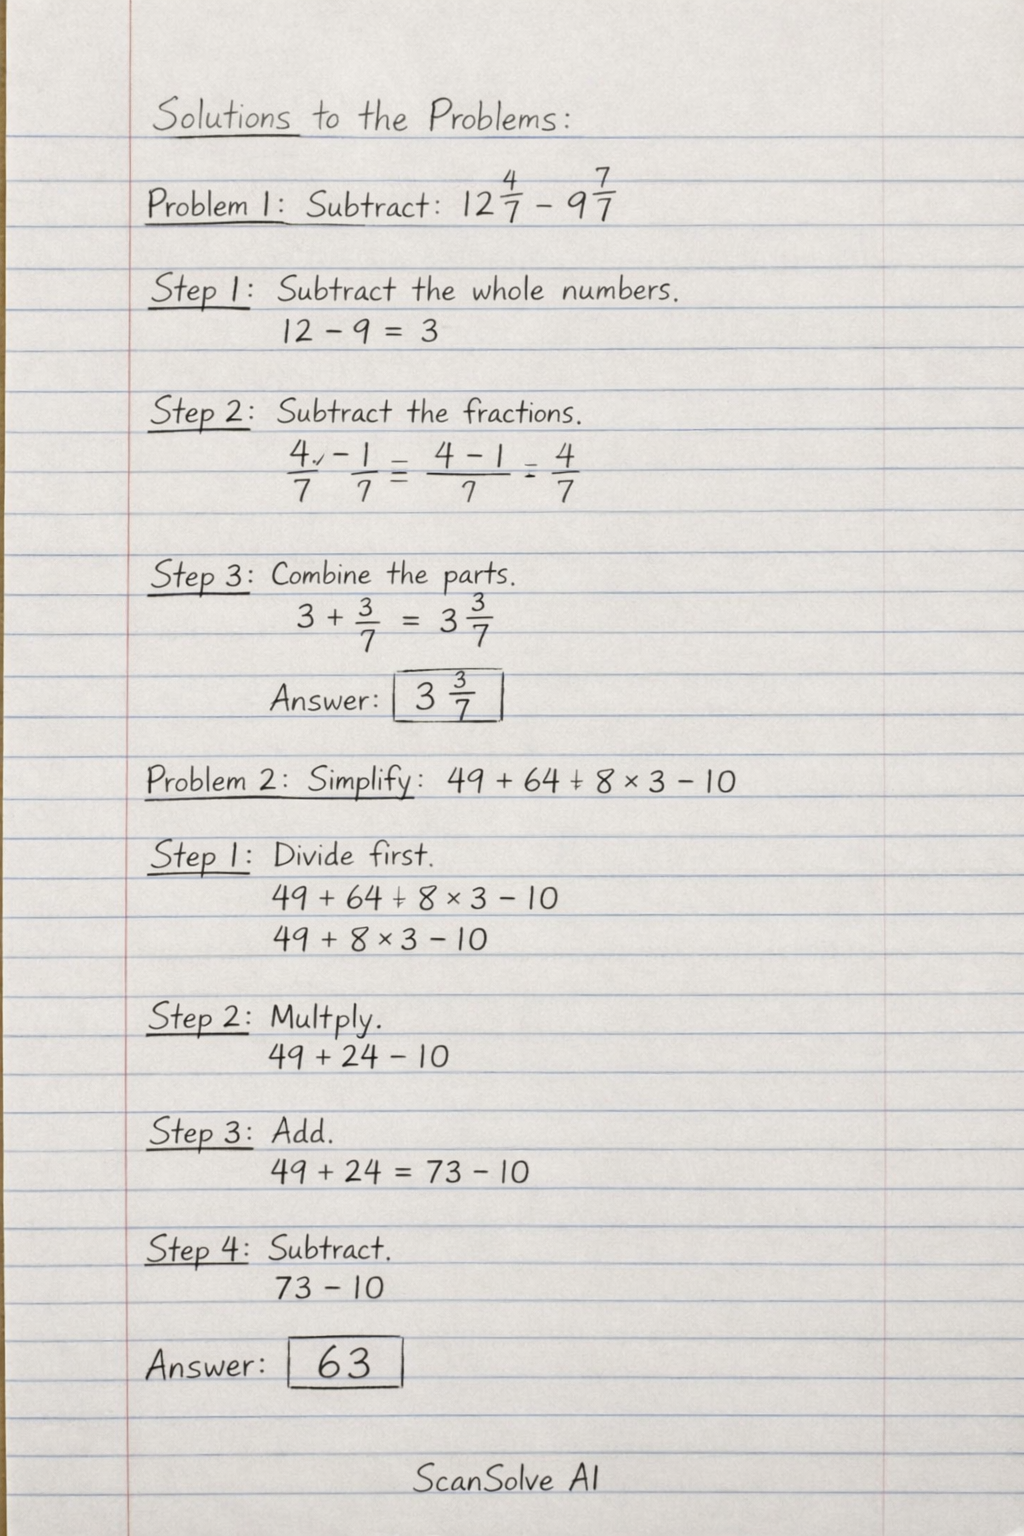 Solutions to the Problems:
Problem 1: Subtract: 12 4/7 - 9 7/7
Step 1: Subtract the whole numbers.
12 - 9 = 3
Step 2: Subtract the fractions.
4/7 - 1/7 = (4 - 1)/7 = 4/7
Step 3: Combine the parts.
3 + 3/7 = 3 3/7
Answer: 3 3/7
Problem 2: Simplify: 49 + 64 ÷ 8 × 3 - 10
Step 1: Divide first.
49 + 64 ÷ 8 × 3 - 10
49 + 8 × 3 - 10
Step 2: Multply.
49 + 24 - 10
Step 3: Add.
49 + 24 = 73 - 10
Step 4: Subtract.
73 - 10
Answer: 63
ScanSolve AI